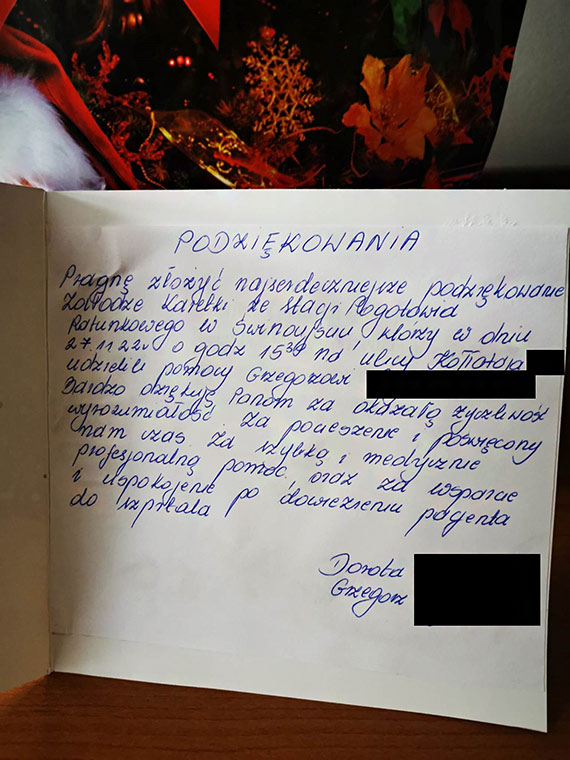 PODZIĘKOWANIA
Pragnę złożyć najserdeczniejsze podziękowanie
Załodze Karetki ze stacji Pogotowia
Ratunkowego w Świnoujściu którzy w dniu
27 11 22r o godz 15³⁰ na ulicy Kołłątaja
udzielili pomocy Grzegorzowi
Bardzo dziękuję Panom za okazałą życzliwość
wyrozumiałość za pocieszenie i poświęcony
nam czas za szybką i medycznie
profesjonalną pomoc, oraz za wsparcie
i uspokojenie po dowiezieniu pacjenta
do szpitala
Dorota
Grzegorz